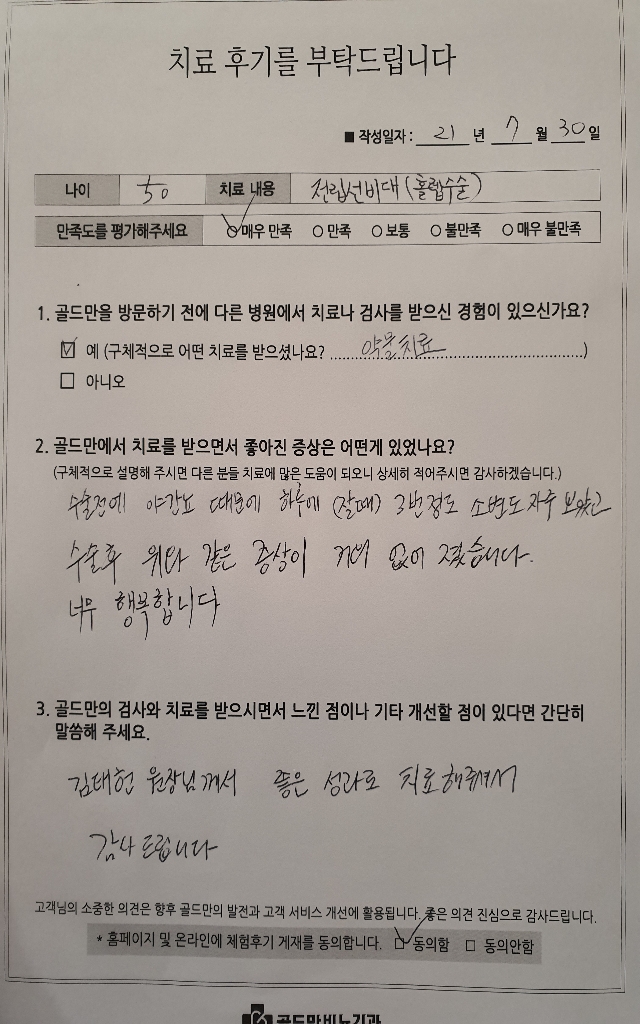 치료 후기를 부탁드립니다
■ 작성일자 : 21 년 7 월 30 일
나이 50 치료 내용 전립선비대 (홀렙수술)
만족도를 평가해주세요 ○ 매우 만족 ○ 만족 ○ 보통 ○ 불만족 ○ 매우 불만족
1. 골드만을 방문하기 전에 다른 병원에서 치료나 검사를 받으신 경험이 있으신가요?
☑ 예 (구체적으로 어떤 치료를 받으셨나요? 약물치료 )
□ 아니오
2. 골드만에서 치료를 받으면서 좋아진 증상은 어떤게 있었나요?
(구체적으로 설명해 주시면 다른 분들 치료에 많은 도움이 되오니 상세히 적어주시면 감사하겠습니다.)
수술전에 야간뇨 때문에 하루에 (잘때) 3번정도 소변도 자주 보았고
수술후 위와 같은 증상이 거의 없어 졌습니다.
너무 행복합니다
3. 골드만의 검사와 치료를 받으시면서 느낀 점이나 기타 개선할 점이 있다면 간단히
말씀해 주세요.
김태헌 원장님께서 좋은 성과로 치료해주셔서
감사드립니다
고객님의 소중한 의견은 향후 골드만의 발전과 고객 서비스 개선에 활용됩니다. 좋은 의견 진심으로 감사드립니다.
* 홈페이지 및 온라인에 체험후기 게재를 동의합니다. ☑ 동의함 □ 동의안함
골드만비뇨기과